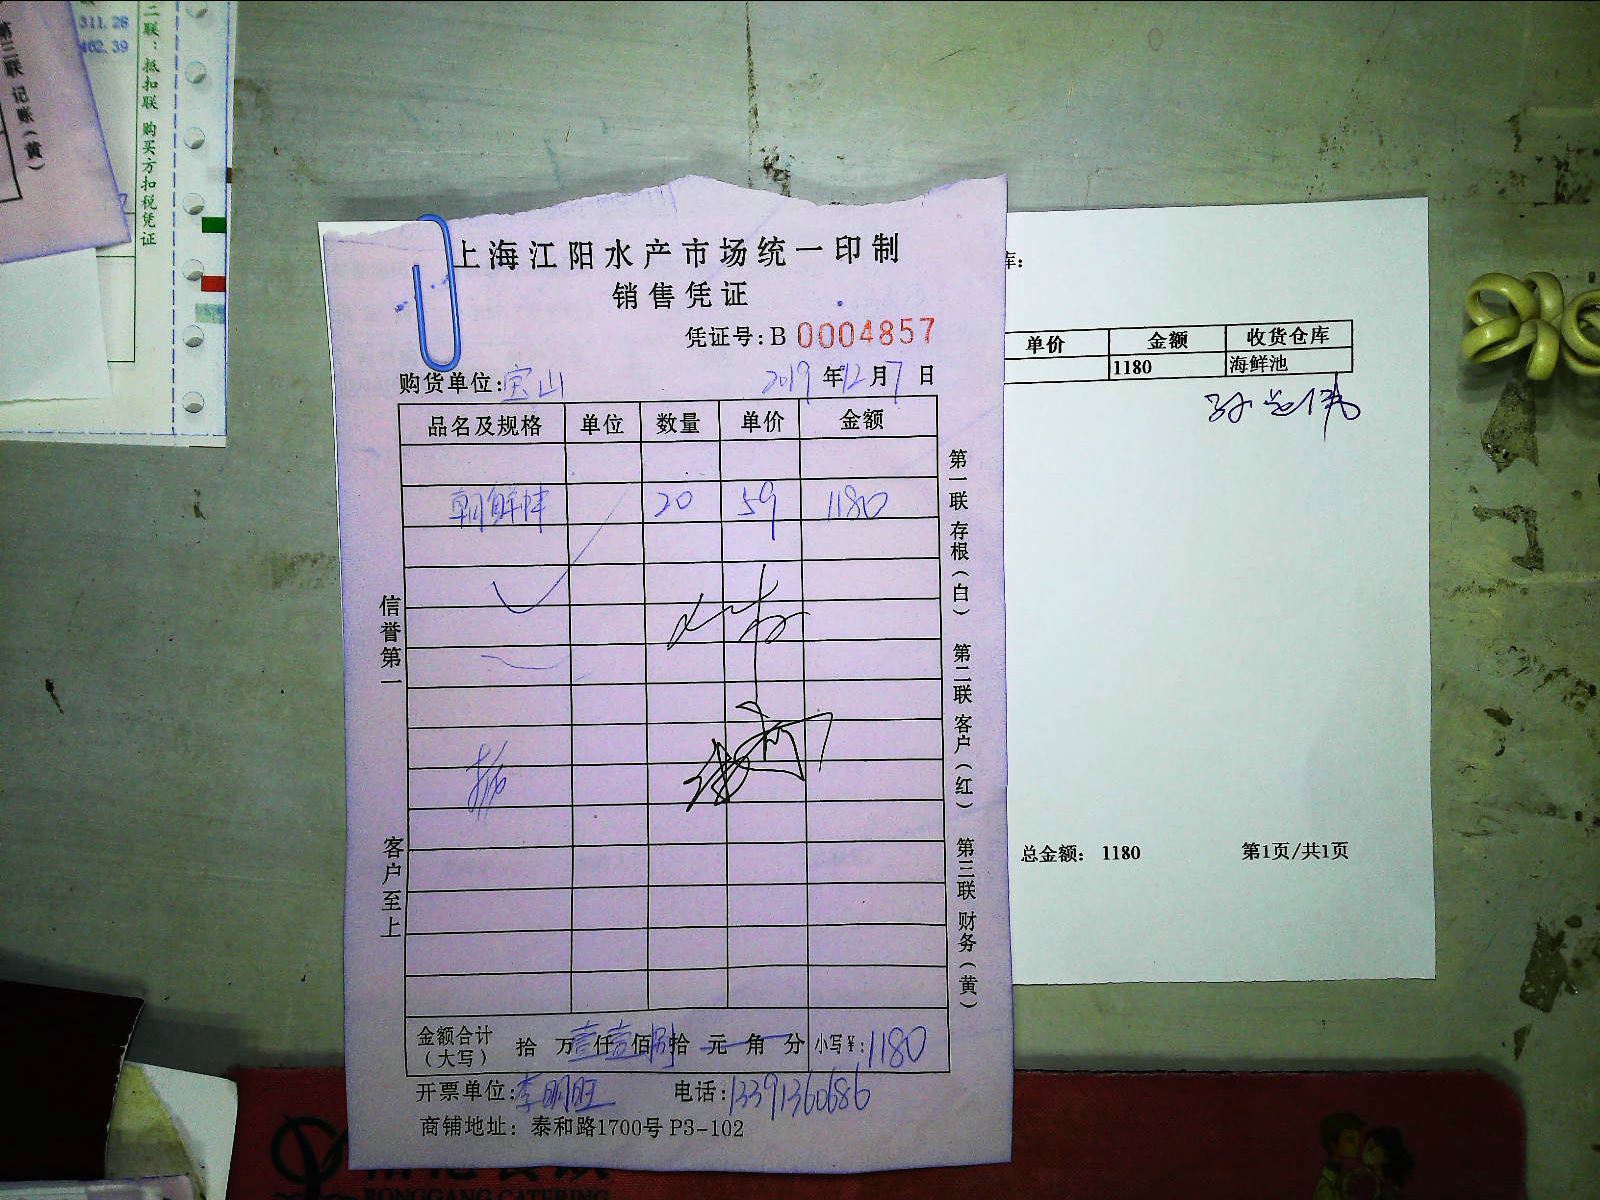 311.28
462.39
第三联 记账（黄）
二联：抵扣联 购买方扣税凭证
上海江阳水产市场统一印制
销售凭证
凭证号：B 0004857
购货单位：宝山 2019年12月7日
品名及规格 单位 数量 单价 金额
朝鲜蚌 20 59 1180
信誉第一
客户至上
第一联 存根（白） 第二联 客户（红） 第三联 财务（黄）
金额合计（大写） 拾 万壹仟壹佰捌拾 元 角 分 小写¥：1180
开票单位：李明旺 电话：13391360686
商铺地址：泰和路1700号 P3-102
库：
单价 金额 收货仓库
1180 海鲜池
总金额： 1180 第1页/共1页
RONGGANG CATERING